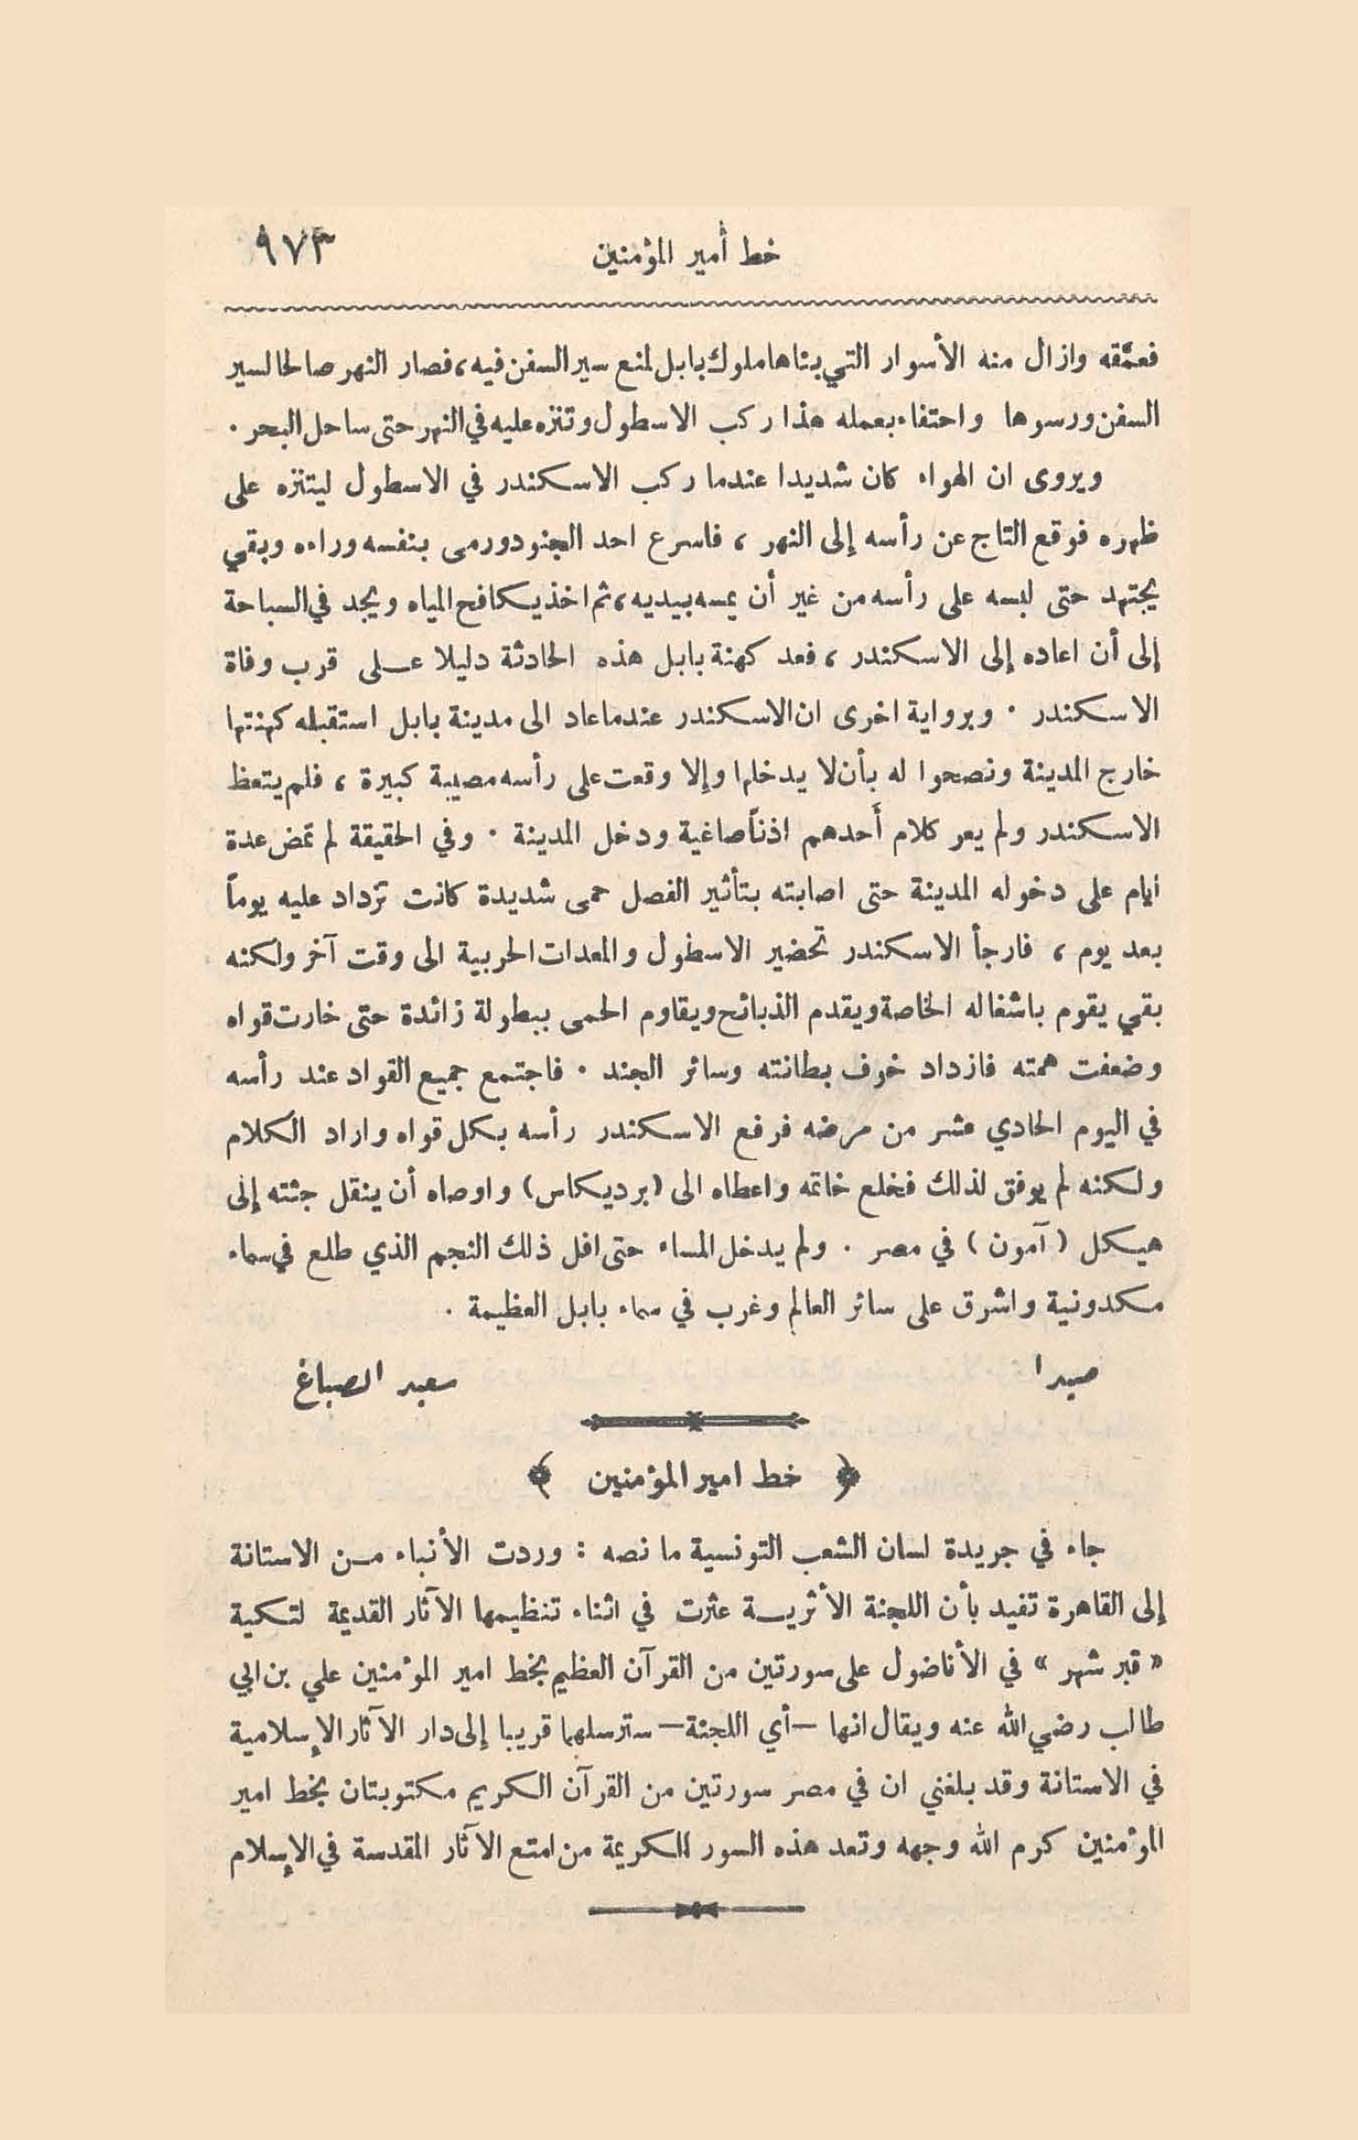 خط أمير المؤمنين ٩٧٣
فعمَّقه وازال منه الأسوار التي بناها ملوك بابل لمنع سير السفن فيه، فصار النهر صالحا لسير
السفن ورسوها واحتفاء بعمله هذا ركب الاسطول وتنزه عليه في النهر حتى ساحل البحر .
ويروى ان الهواء كان شديدا عندما ركب الاسكندر في الاسطول ليتنزه على
ظهره فوقع التاج عن رأسه إلى النهر ، فاسرع احد الجنود ورمى بنفسه وراءه وبقي
يجتهد حتى لبسه على رأسه من غير أن يمسه بيديه، ثم اخذ يكافح المياه ويجد في السباحة
إلى أن اعاده إلى الاسكندر ، فعد كهنة بابل هذه الحادثة دليلا على قرب وفاة
الاسكندر . وبرواية اخرى ان الاسكندر عندما عاد الى مدينة بابل استقبله كهنتها
خارج المدينة ونصحوا له بأن لا يدخلها وإلا وقعت على رأسه مصيبة كبيرة ، فلم يتعظ
الاسكندر ولم يعر كلام أَحدهم اذناً صاغية ودخل المدينة . وفي الحقيقة لم تمض عدة
ايام على دخوله المدينة حتى اصابته بتأثير الفصل حمى شديدة كانت تزداد عليه يوماً
بعد يوم ، فارجأ الاسكندر تحضير الاسطول والمعدات الحربية الى وقت آخر ولكنه
بقي يقوم باشغاله الخاصة ويقدم الذبائح ويقاوم الحمى ببطولة زائدة حتى خارت قواه
وضعفت همته فازداد خوف بطانته وسائر الجند . فاجتمع جميع القواد عند رأسه
في اليوم الحادي عشر من مرضه فرفع الاسكندر رأسه بكل قواه واراد الكلام
ولكنه لم يوفق لذلك فخلع خاتمه واعطاه الى (برديكاس) واوصاه أن ينقل جثته إلى
هيكل (آمون) في مصر . ولم يدخل المساء حتى افل ذلك النجم الذي طلع في سماء
مكدونية واشرق على سائر العالم وغرب في سماء بابل العظيمة .
صيدا سعيد الصباغ
﴿ خط امير المؤمنين ﴾
جاء في جريدة لسان الشعب التونسية ما نصه : وردت الأنباء من الاستانة
إلى القاهرة تفيد بأن اللجنة الأثرية عثرت في اثناء تنظيمها الآثار القديمة لتكية
« قبر شهر » في الأناضول على سورتين من القرآن العظيم بخط امير المؤمنين علي بن ابي
طالب رضي الله عنه ويقال انها —أي اللجنة— سترسلهما قريبا إلى دار الآثار الإسلامية
في الاستانة وقد بلغني ان في مصر سورتين من القرآن الكريم مكتوبتان بخط امير
المؤمنين كرم الله وجهه وتعد هذه السور الكريمة من امتع الآثار المقدسة في الإسلام